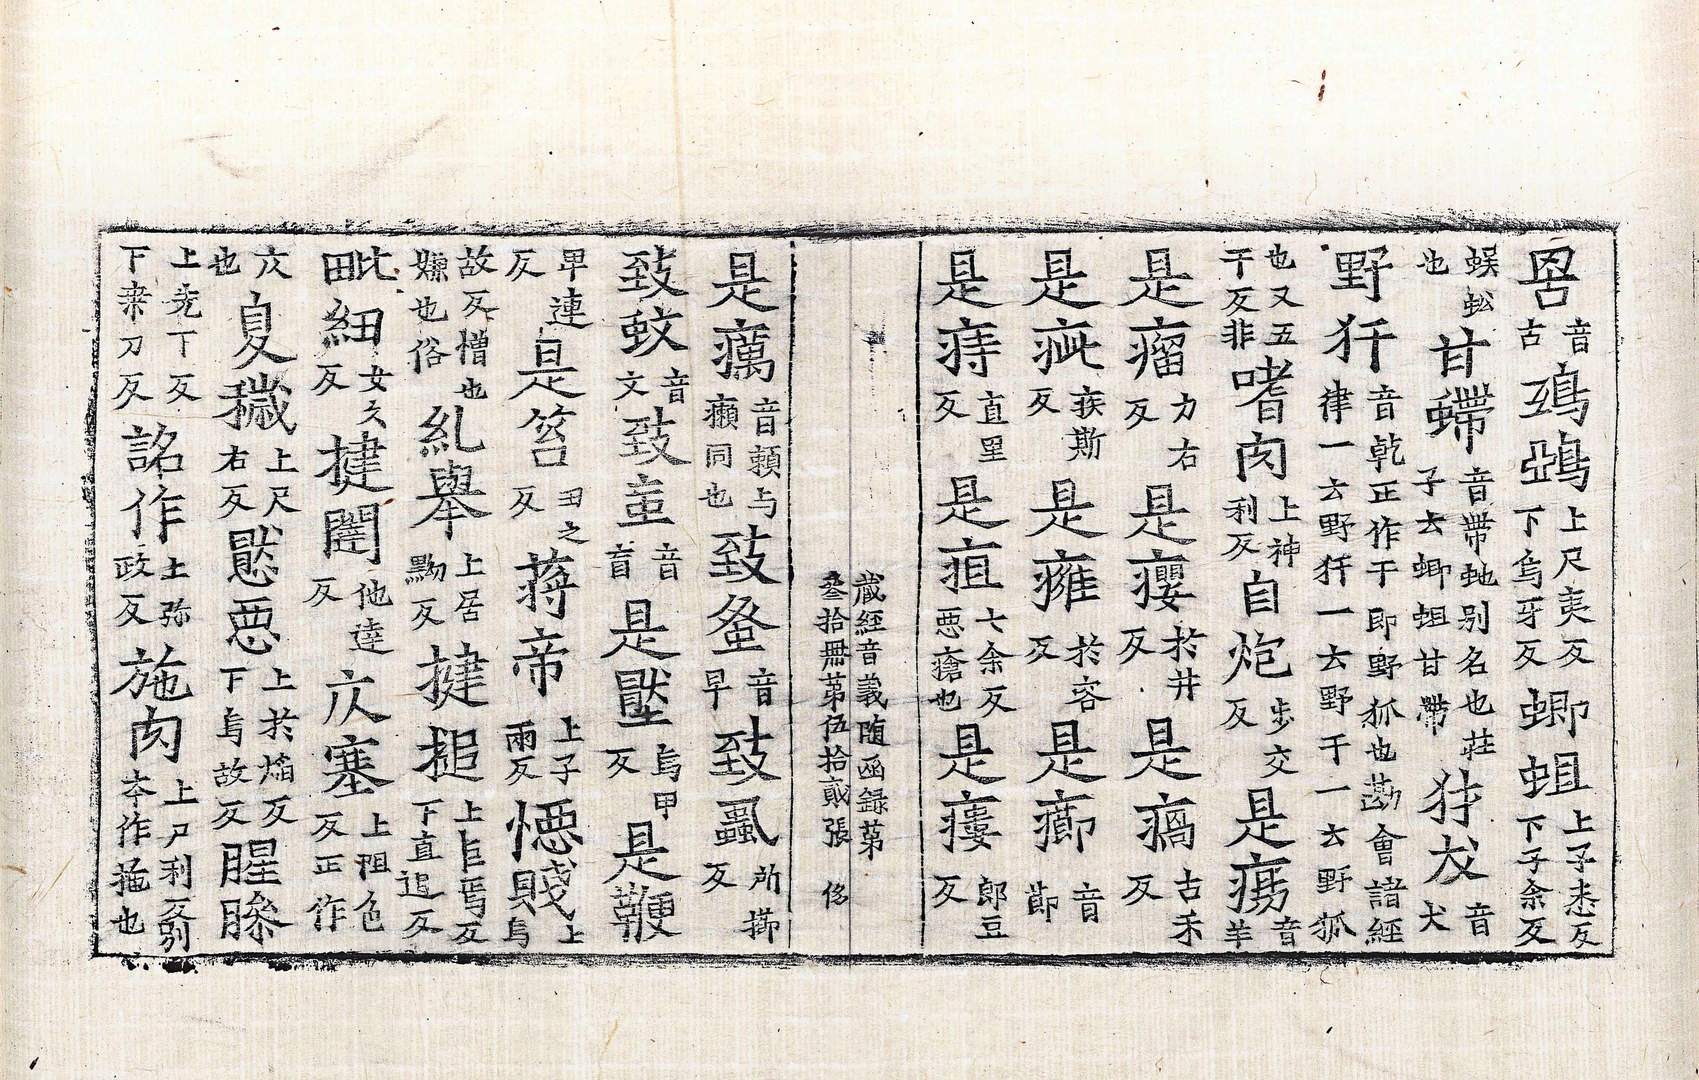 罟音古鵄鵶上尺夷反下烏牙反蝍蛆上子悉反下子余反
蜈蚣也甘螮音帶虵別名也莊子云蝍蛆甘帶犲犮音犬
野犴音乹正作干即野狐也勘會諸經律一云野犴一云野干一云野狐
也又五干反非嗜肉上神利反自炮步交反是㾐音羊
是瘤力右反是癭於井反是㾺古禾反
是疵疾斯反是癰於容反是癤音節
是痔直里反是疽七余反悪瘡也是瘻郎豆反
藏經音義随函録第
叁拾冊苐伍拾貳張 侈
是癘音頼与癩同也致蚤音早致蝨所擳反
致蚊音文致䖟音盲是壓烏甲反是鞭
卑連反是笞丑之反蔣帝上子兩反㥁賤上烏
故反憎也嫌也俗糺舉上居黝反揵搥上巨焉反下直追反
毗紐女久反揵闥他達反仄塞上阻色反正作
㡲也夐穢上尺右反懕悪上於焔反下烏故反腥臊
上先丁反下桒刀反詺作上弥政反施肉上尸利反別本作㧱也